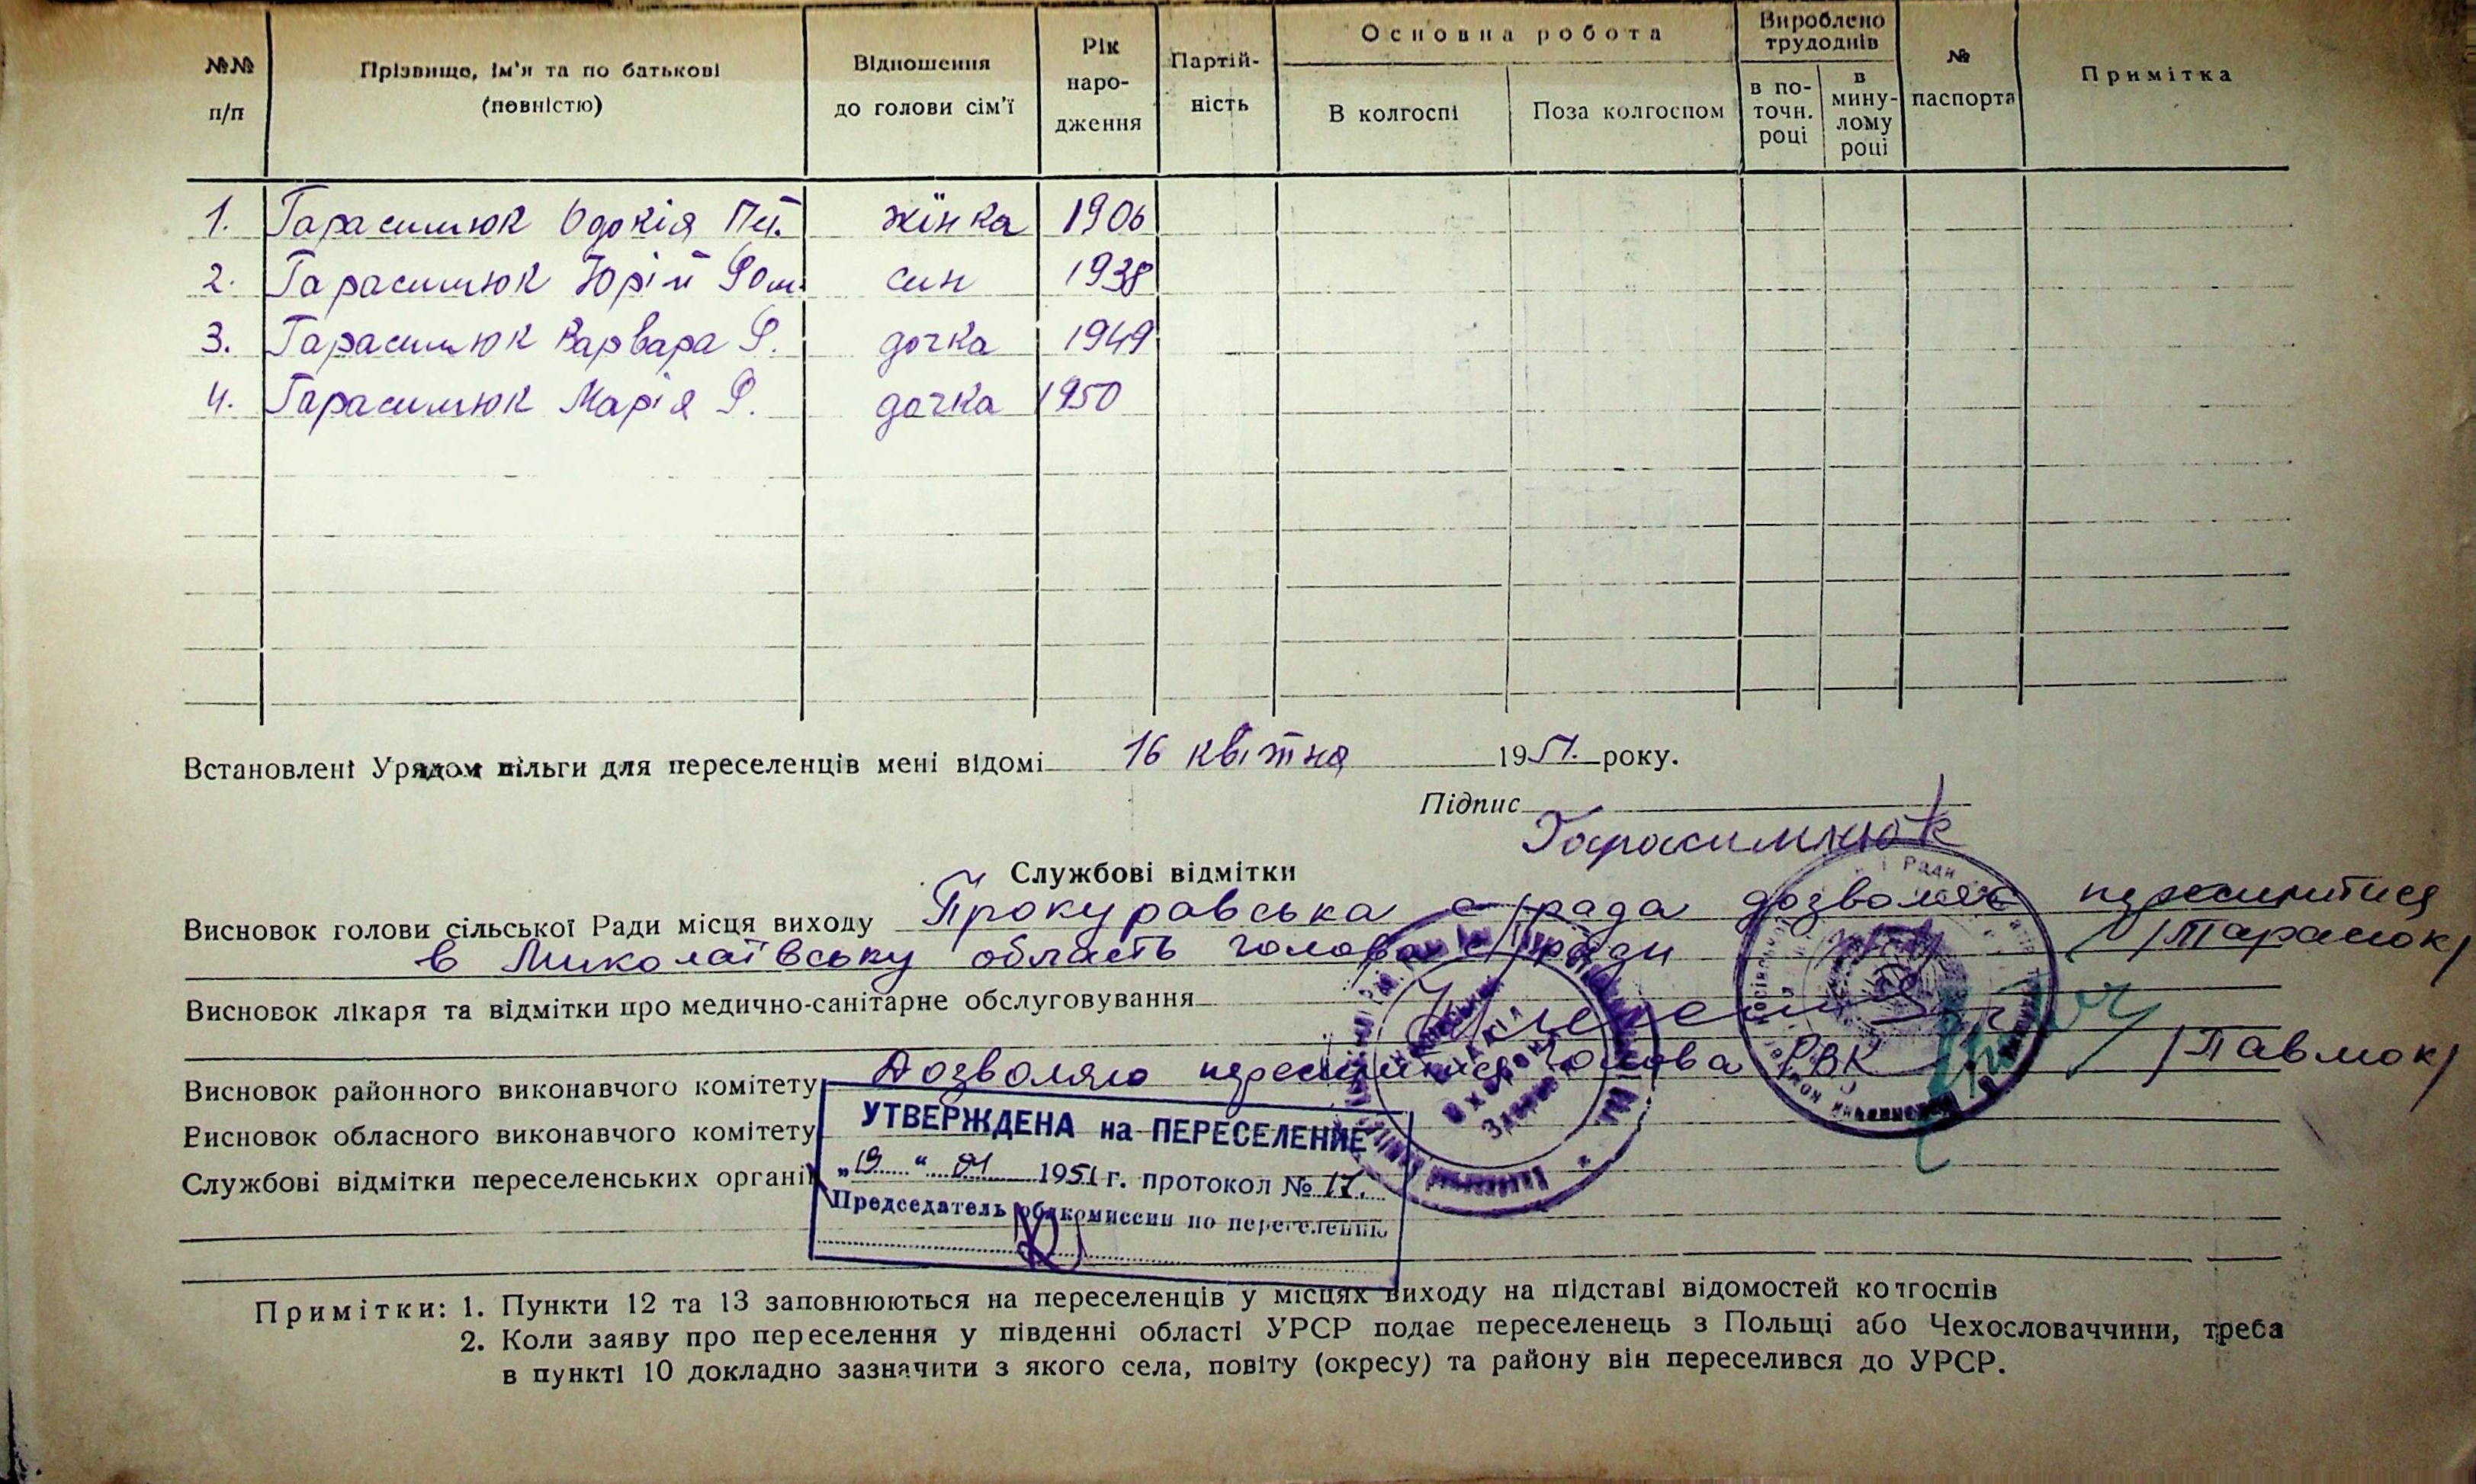 №№ п/п Прізвище, ім'я та по батькові (повністю) Відношення до голови сім'ї Рік наро- дження Партій- ність Основна робота В колгоспі Поза колгоспом Вироблено трудоднів в по- точн. році в мину- лому році № паспорта Примітка
1. Гарасимюк Одокія Пет. жінка 1906
2. Гарасимюк Юрій Ром. син 1938
3. Гарасимюк Варвара Р. дочка 1949
4. Гарасимюк Марія Р. дочка 1950
Встановлені Урядом пільги для переселенців мені відомі 16 квітня 1951. року.
Підпис
Гарасимнюк
Службові відмітки
Висновок голови сільської Ради місця виходу Прокуравська с/рада дозволяє переселитися
в Миколаївську область голова с/ради /Тарасюк/
Висновок лікаря та відмітки про медично-санітарне обслуговування
Висновок районного виконавчого комітету Дозволяю переселитися Голова РВК /Павлюк/
Висновок обласного виконавчого комітету
Службові відмітки переселенських органі
УТВЕРЖДЕНА на ПЕРЕСЕЛЕНИЕ
„19 “ 1951 г. протокол № 17.
Председатель облкомиссии по переселению
Примітки: 1. Пункти 12 та 13 заповнюються на переселенців у місцях виходу на підставі відомостей колгоспів
2. Коли заяву про переселення у південні області УРСР подає переселенець з Польщі або Чехословаччини, треба
в пункті 10 докладно зазначити з якого села, повіту (окресу) та району він переселився до УРСР.